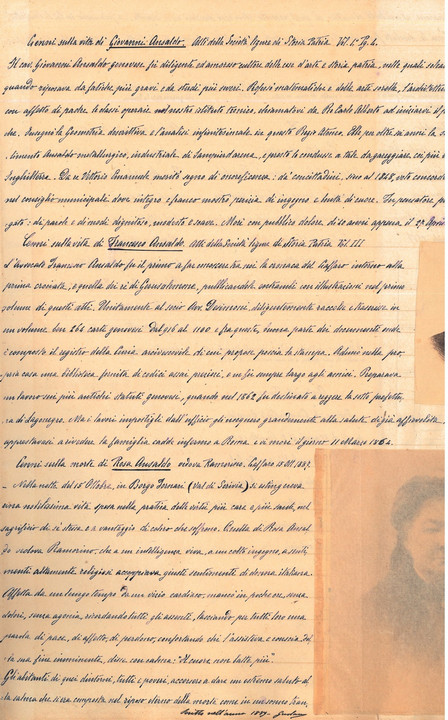 Cenni sulla vita di Giovanni Ansaldo. Atti della Società ligure di Storia Patria Vol. 1.° Pg. 4.
Il cav. Giovanni Ansaldo genovese fu diligente ed amoroso cultore delle cose d'arte e storia patria, nelle quali
quando riposava da fatiche più gravi e da studi più severi. Professò matematiche e della arte
con affetto di padre le classi operaie nel nostro istituto tecnico, chiamatovi da Re Carlo Alberto ad iniziarvi
che. Insegnò la Geometria descrittiva e l'analisi infinitesimale in questo Regio Ateneo.
limento Ansaldo metallurgico, industriale, di Sampierdarena, e presto lo condusse a tale da gareggiare coi più
Inghilterra. Da Vittorio Emanuele meritò segno di onorificenza: dai concittadini, sino al 1848, voto concorde
nel consiglio municipale dove integro e franco mostrò perizia di ingegno e bontà di cuore. Fu pensatore
gato: di parole e di modi dignitoso, modesto e soave. Morì con pubblico dolore di 40 anni appena il 2°
Cenni sulla vita di Francesco Ansaldo. Atti della Società ligure di Storia Patria Vol. III
L'avvocato Francesco Ansaldo fu il primo a far conoscere tra noi la cronaca del Caffaro intorno alla
prima crociata, e quella dei re di Gerusalemme, pubblicandole entrambe con illustrazioni nel primo
volume di questi atti. Unitamente al socio Avv. Desimoni, diligentemente raccolse e trascrisse in
un volume ben 264 carte genovesi dal 916 al 1100 e fra queste, buona parte dei documenti onde
è composto il registro della Curia arcivescovile di cui propose poscia la stampa. Adunò nella pro-
pria casa una biblioteca fornita di codici assai preziosi, e ne fu sempre largo agli amici. Preparava
un lavoro sui più antichi statuti genovesi, quando nel 1862 fu destinato a reggere la sotto prefettu-
ra di Lagonegro. Ma i lavori impostigli dall'ufficio gli nocquero grandemente alla salute di già affievolita
apprestavasi a rivedere la famiglia cadde infermo a Roma e vi morì il giorno 11 Marzo 1864.
Cenni sulla morte di Rosa Ansaldo vedova Ramorino. Caffaro 18 Ott. 1889.
Nella notte del 15 Ottobre, in Borgo Fornari (Val di Scrivia) si estingueva
una nobilissima vita spesa nella pratica delle virtù più care e più sante, nel
sacrificio di sè stessa e a vantaggio di coloro che soffrono. Quella di Rosa Ansal-
do vedova Ramorino, che a un intelligenza viva, a un colto ingegno, a senti-
menti altamente religiosi accoppiava giusti sentimenti di donna italiana.
Affetta da un lungo tempo da un vizio cardiaco, mancò in poche ore, senza
dolori, senza agonia, ricordando tutti gli assenti, lasciando per tutti loro una
parola di pace, di affetto, di perdono, confortando chi l'assisteva e conscia del-
la sua fine imminente, disse con calma: "Il cuore non batte più".
Gli abitanti di quei dintorni, tutti e poveri, accorsero a dare un estremo saluto al-
la salma che si era composta nel riposo eterno della morte come in un sonno tran
scritto nell'anno 1889.